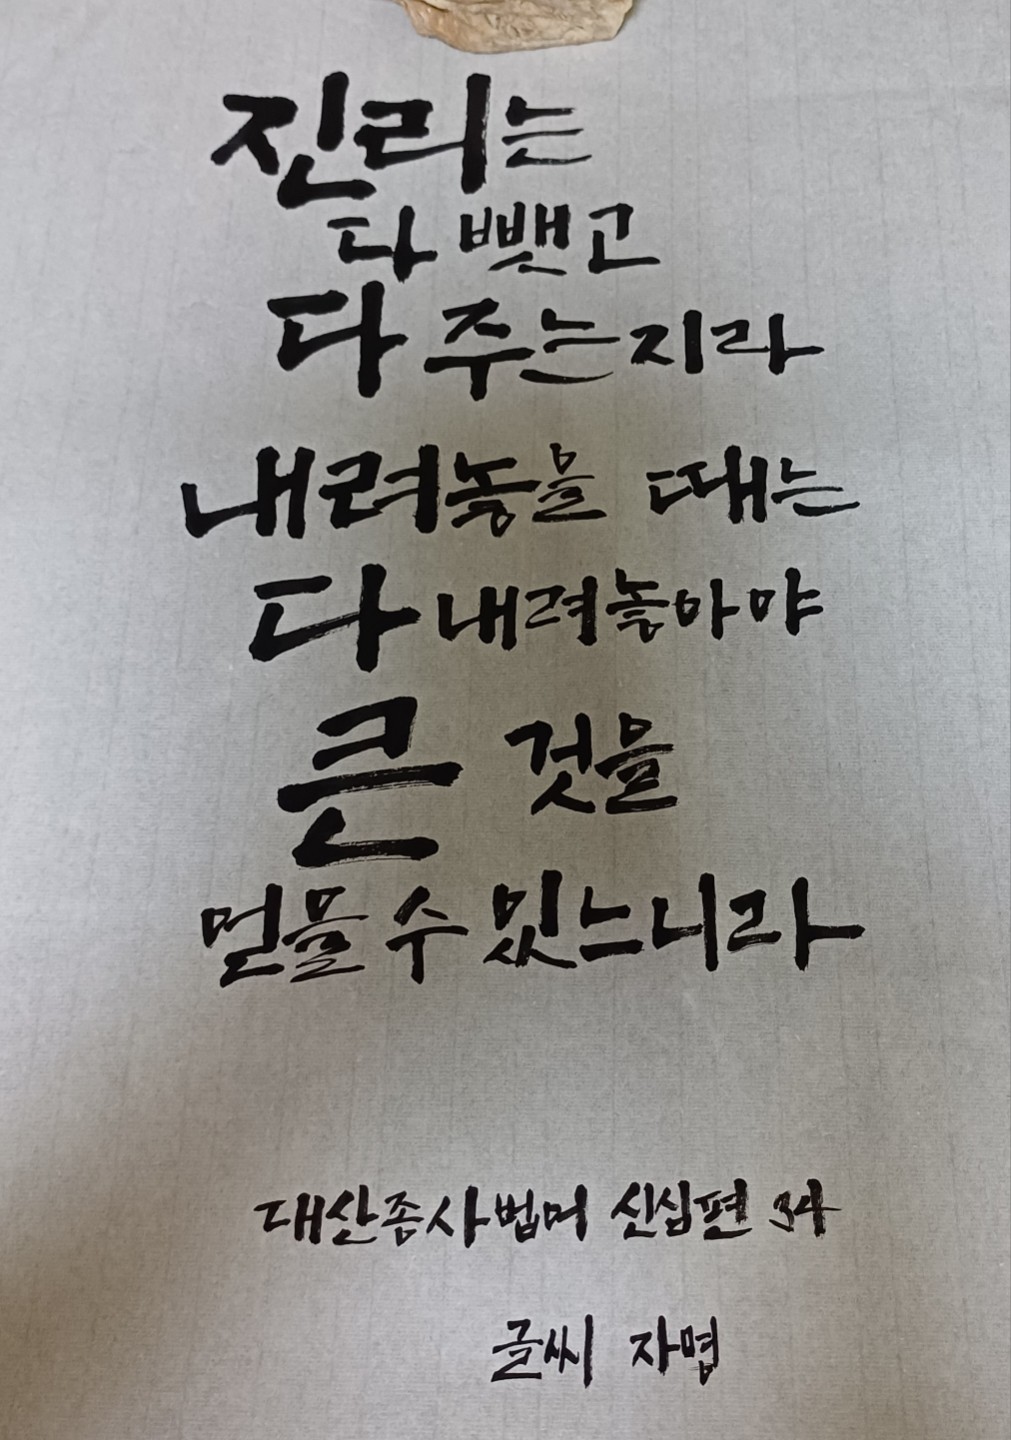 진리는
다 뺏고
다 주는지라
내려놓을 때는
다 내려놓아야
큰 것을
얻을 수 있느니라
대산종사법어 신심편 34
글씨 자명